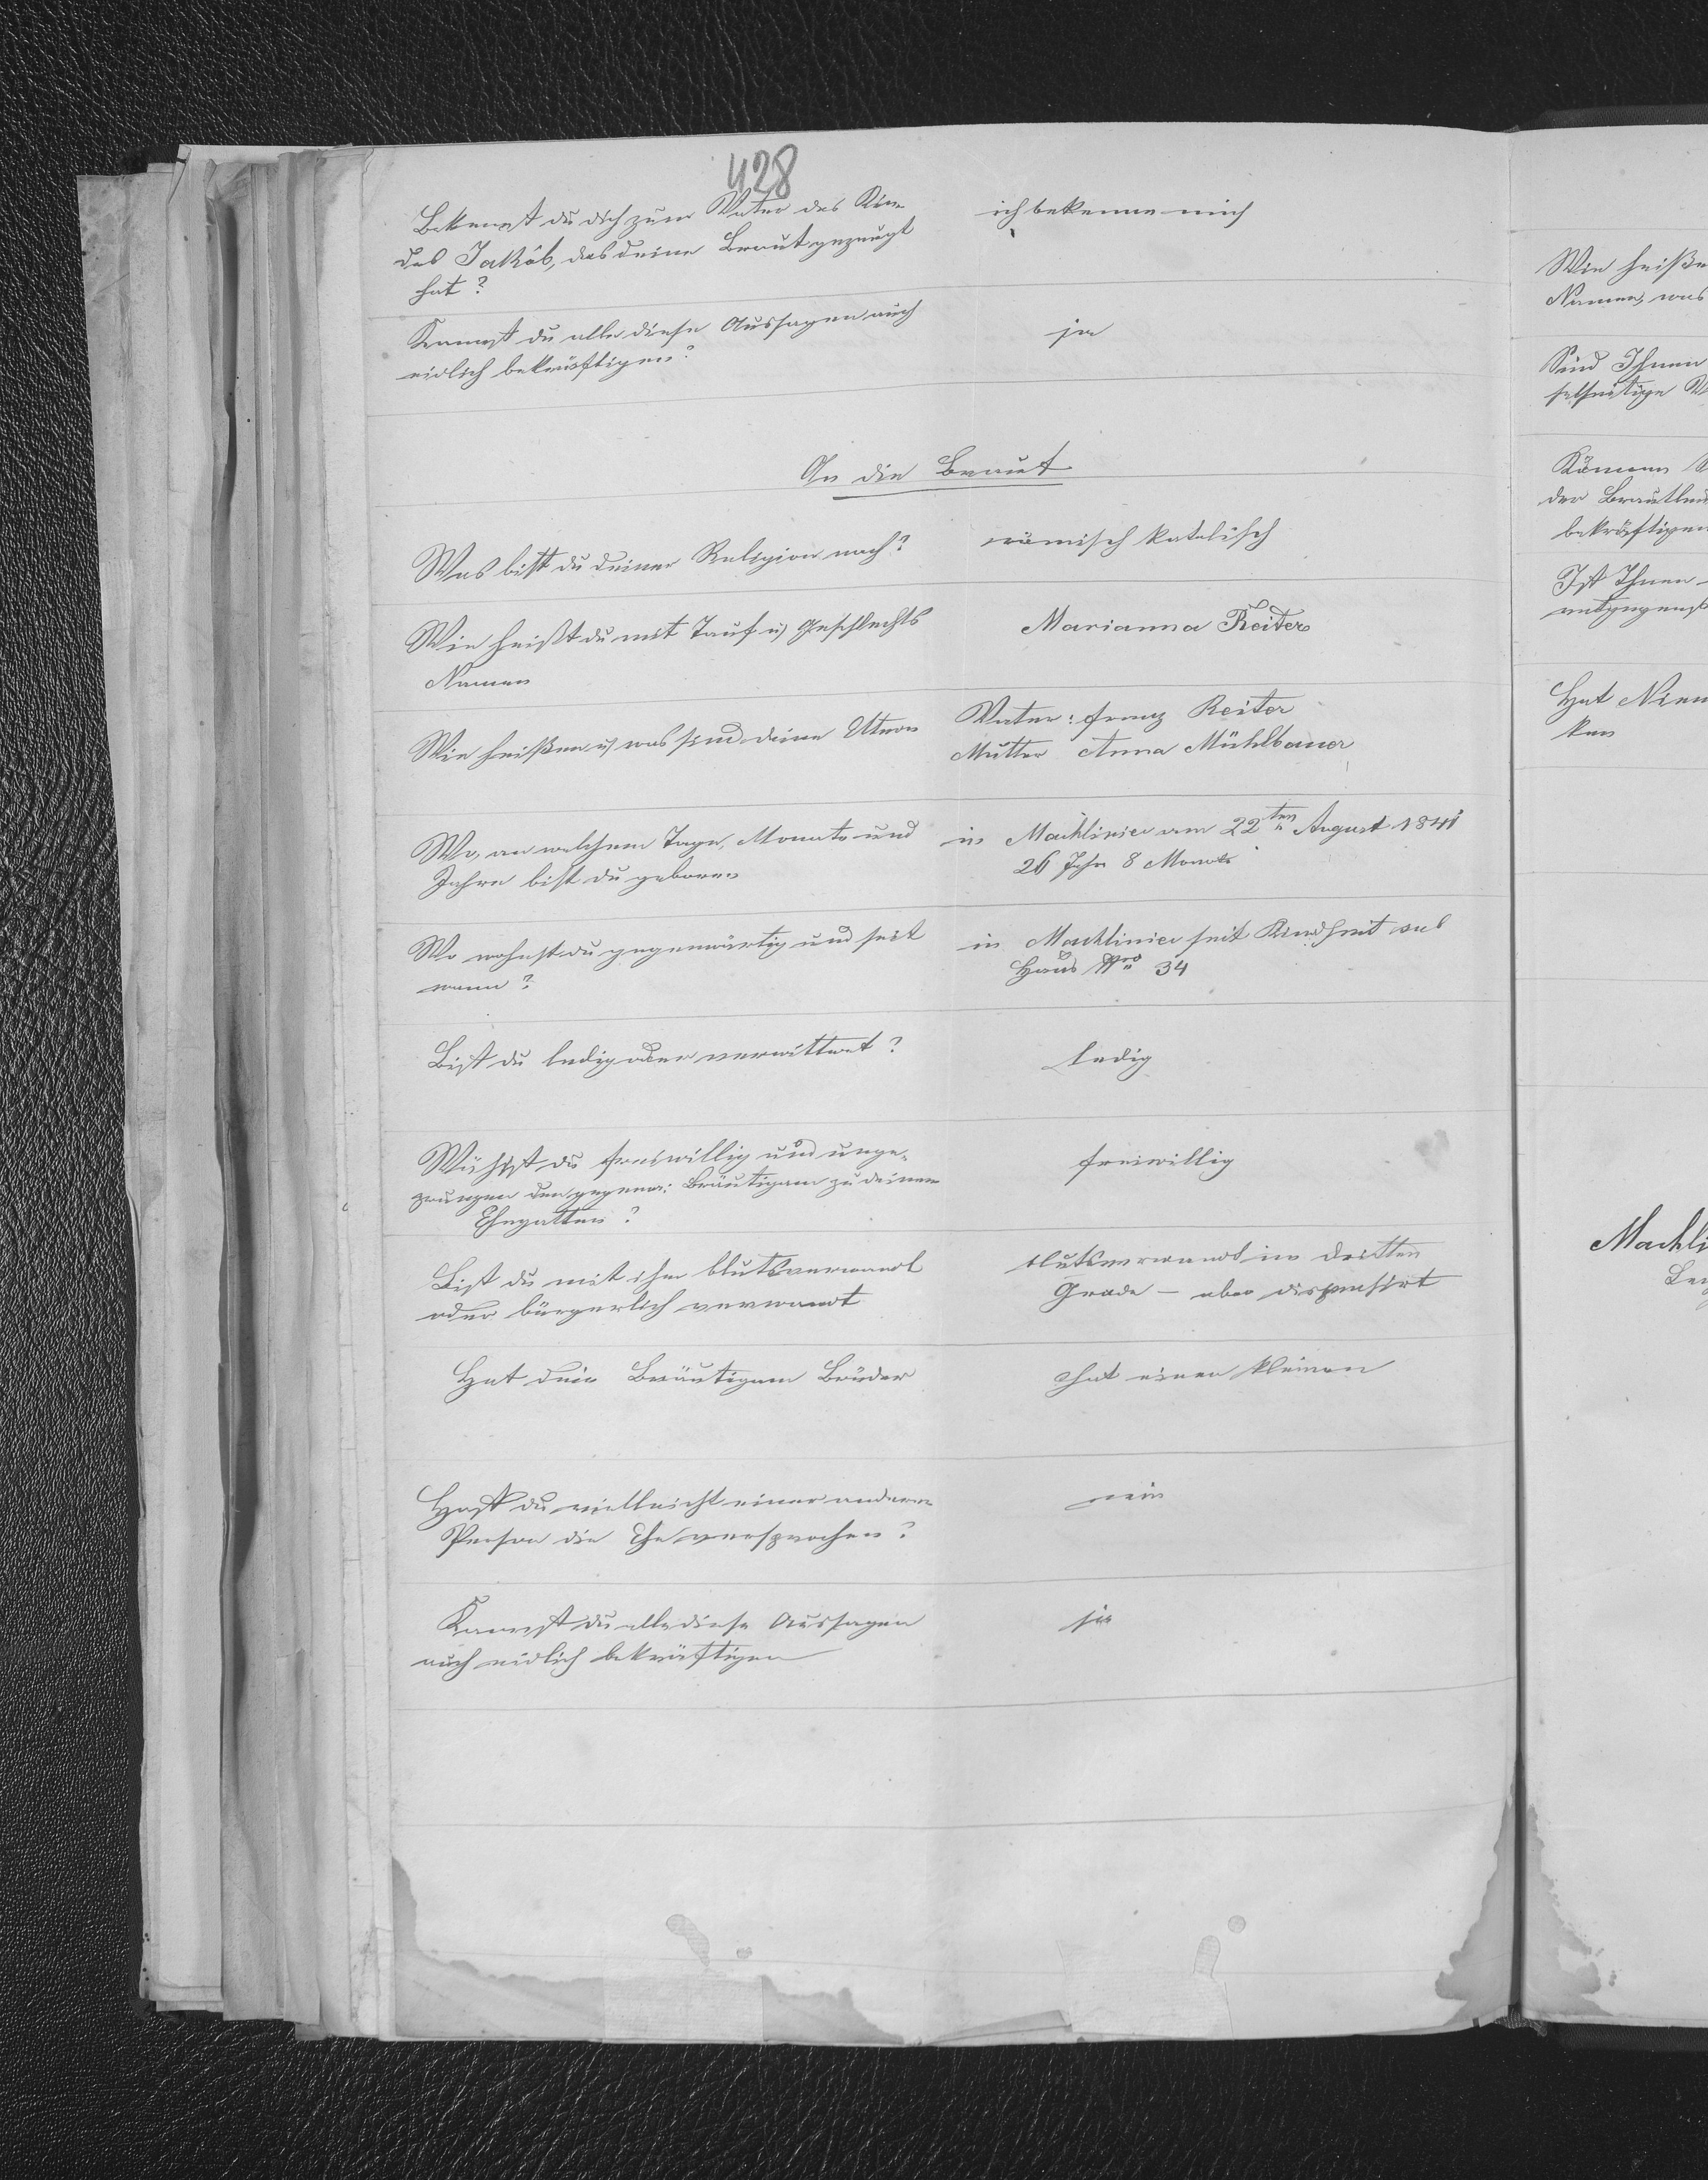 428
Bekennst du dich zum Vater des Kin-
des Jakob, das deine Braut gezeugt
hat?
ich bekenne mich
Kannst du alle diese Aussagen auch
eidlich bekräftigen?
ja
An die Braut
Was bist du deiner Religion nach?
römisch katolisch
Wie heißt du mit Tauf u Geschlechts
Namen
Marianna Reiter
Wie heißen u was sind deine Eltern
Vater: Franz Reiter
Mutter Anna Mühlbauer
Wo, an welchem Tage, Monate und
Jahre bist du geboren
in Machliniec am 22ten August 1841
26 Jahr 8 Monate
Wo wohnst du gegenwärtig und seit
wann?
in Machliniec seit Kindheit sub
Haus Nro 34
Bist du ledig oder verwittwet?
ledig
Wählst du freiwillig und unge-
zwungen den gegenw: Bräutigam zu deinem
Ehegatten?
freiwillig
Bist du mit ihm blutsverwandt
oder bürgerlich verwandt
blutsverwandt im dritten
Grade – aber dispensirt
Hat dein Bräutigam Brüder
hat einen kleinen
Hast du vielleicht einer anderen
Person die Ehe versprochen?
nein
Kannst du alle diese Aussagen
auch eidlich bekräftigen
ja
Wie heiße
Namen, was
Sind Ihnen
Können
der Brautleu
bekräftigen
Ist Ihnen
Hat Niem
ken
Machli